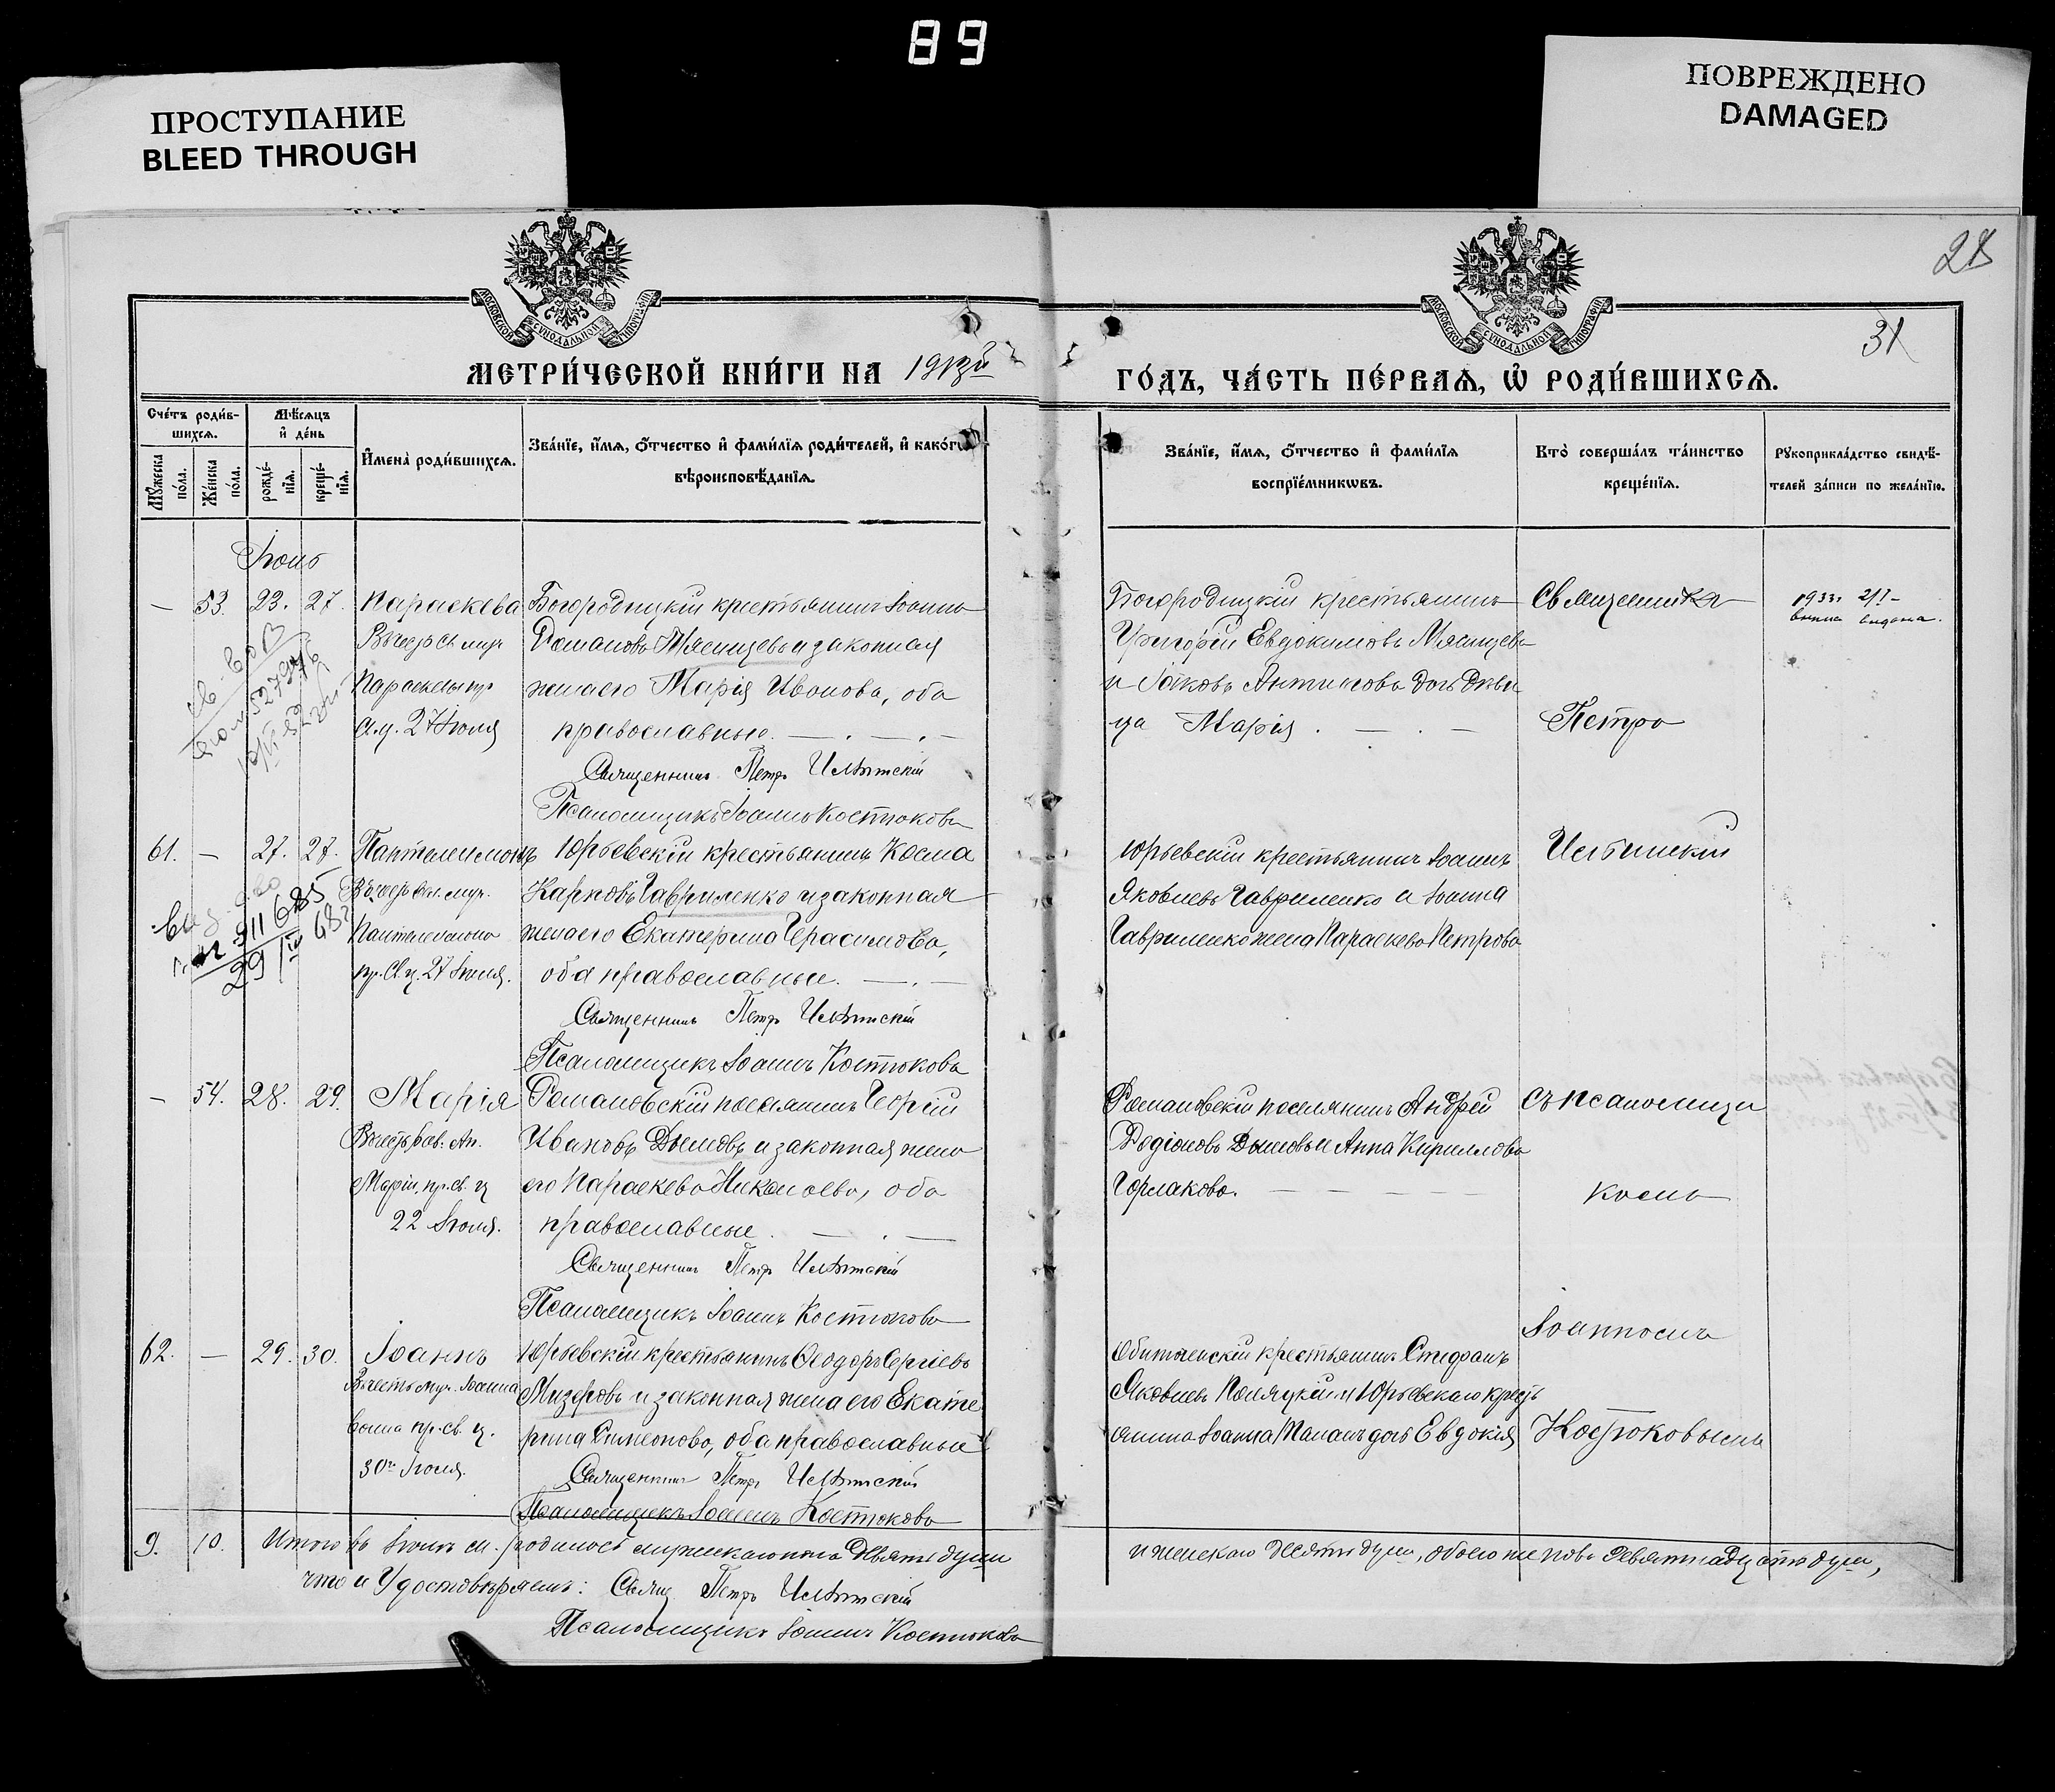 89
ПРОСТУПАНИЕ
BLEED THROUGH
ПОВРЕЖДЕНО
DAMAGED
28
31
МОСКОВСКОЙ СУНОДАЛЬНОЙ ТИПОГРАФІИ
МОСКОВСКОЙ СУНОДАЛЬНОЙ ТИПОГРАФІИ
МЕТРИ́ЧЕСКОЙ КНИ́ГИ НА 1913й
ГО́ДЪ, ЧА́СТЬ ПЕ́РВАѦ, Ѡ҆ РОДИ́ВШИХСѦ.
Сче́тъ роди́в-
шихсѧ.
Мѣ́сѧцъ
и҆ де́нь
Мꙋ́жеска
по́ла.
Же́нска
по́ла.
рожде́-
нїѧ.
креще́-
нїѧ.
И҆мена̀ роди́вшихсѧ.
Зва́нїе, и҆́мѧ, ѻ҆́тчество и҆ фами́лїѧ роди́телей, и҆ како́гѡ
вѣроисповѣ́данїѧ.
Зва́нїе, и҆́мѧ, ѻ҆́тчество и҆ фами́лїѧ
воспрїе́мникѡвъ.
Кто̀ соверша́лъ та́инство
креще́нїѧ.
Рꙋкоприкла́дство свидѣ́-
телей за́писи по жела́нїю.
Іюль
— 53. 23. 27. Параскева
Въ честь св. муч.
Параскевы пр.
св. ц. 27 Іюля
Богородицкій крестьянинъ Іоаннъ
Романовъ Мясищевъ и законная
жена его Марія Иванова, оба
православные.
Священникъ Петръ Илѣтскій
Псаломщикъ Іоаннъ Костюковъ
Богородицкій крестьянинъ
Григорій Евдокимовъ Мясищевъ
и Іакова Антипова дочь дѣви
ца Марія
Священника
Петра
1933
выдана.
61. — 27. 27. Пантелеимонъ
Въ честь вел. муч.
Пантелеимона
пр. св. ц. 27 Іюля.
911685
29
Юрьевскій крестьянинъ Косма
Карповъ Гавриленко и законная
жена его Екатерина Герасимова,
оба православные.
Священникъ Петръ Илѣтскій
Псаломщикъ Іоаннъ Костюковъ
Юрьевскій крестьянинъ Іоаннъ
Яковлевъ Гавриленко и Іоанна
Гавриленко жена Параскева Петрова
— 54. 28. 29. Марія
Въ честь рав. Ап.
Маріи, пр. св. ц
22 Іюля.
Романовскій поселянинъ Георгій
Ивановъ Дымовъ и законная жена
его Параскева Николаева, оба
православные
Священникъ Петръ Илѣтскій
Псаломщикъ Іоаннъ Костюковъ
Романовскій поселянинъ Андрей
Родіоновъ Дымовъ и Анна Кириллова
Горлакова.
съ псаломщи
комъ
62. — 29. 30. Іоаннъ
Въ честь муч. Іоанна
воина пр. св. ц.
30го Іюля.
Юрьевскій крестьянинъ Ѳеодоръ Сергіевъ
Мизеровъ и законная жена его Екате
рина Симеонова, оба православные
Священникъ Петръ Илѣтскій
Псаломщикъ Іоаннъ Костюковъ
крестьянинъ Стефанъ
Яковлевъ и Юрьевскаго кресть
янина Іоанна дочь Евдокія
Іоанномъ
Костюковымъ
9. 10. Итого въ Іюлѣ м. родилось мужскаго пола девять душъ
и женскаго десять душъ, обоего же пола девятнадцать душъ,
что и удостовѣряемъ: Свящ. Петръ Илѣтскій
Псаломщикъ Іоаннъ Костюковъ